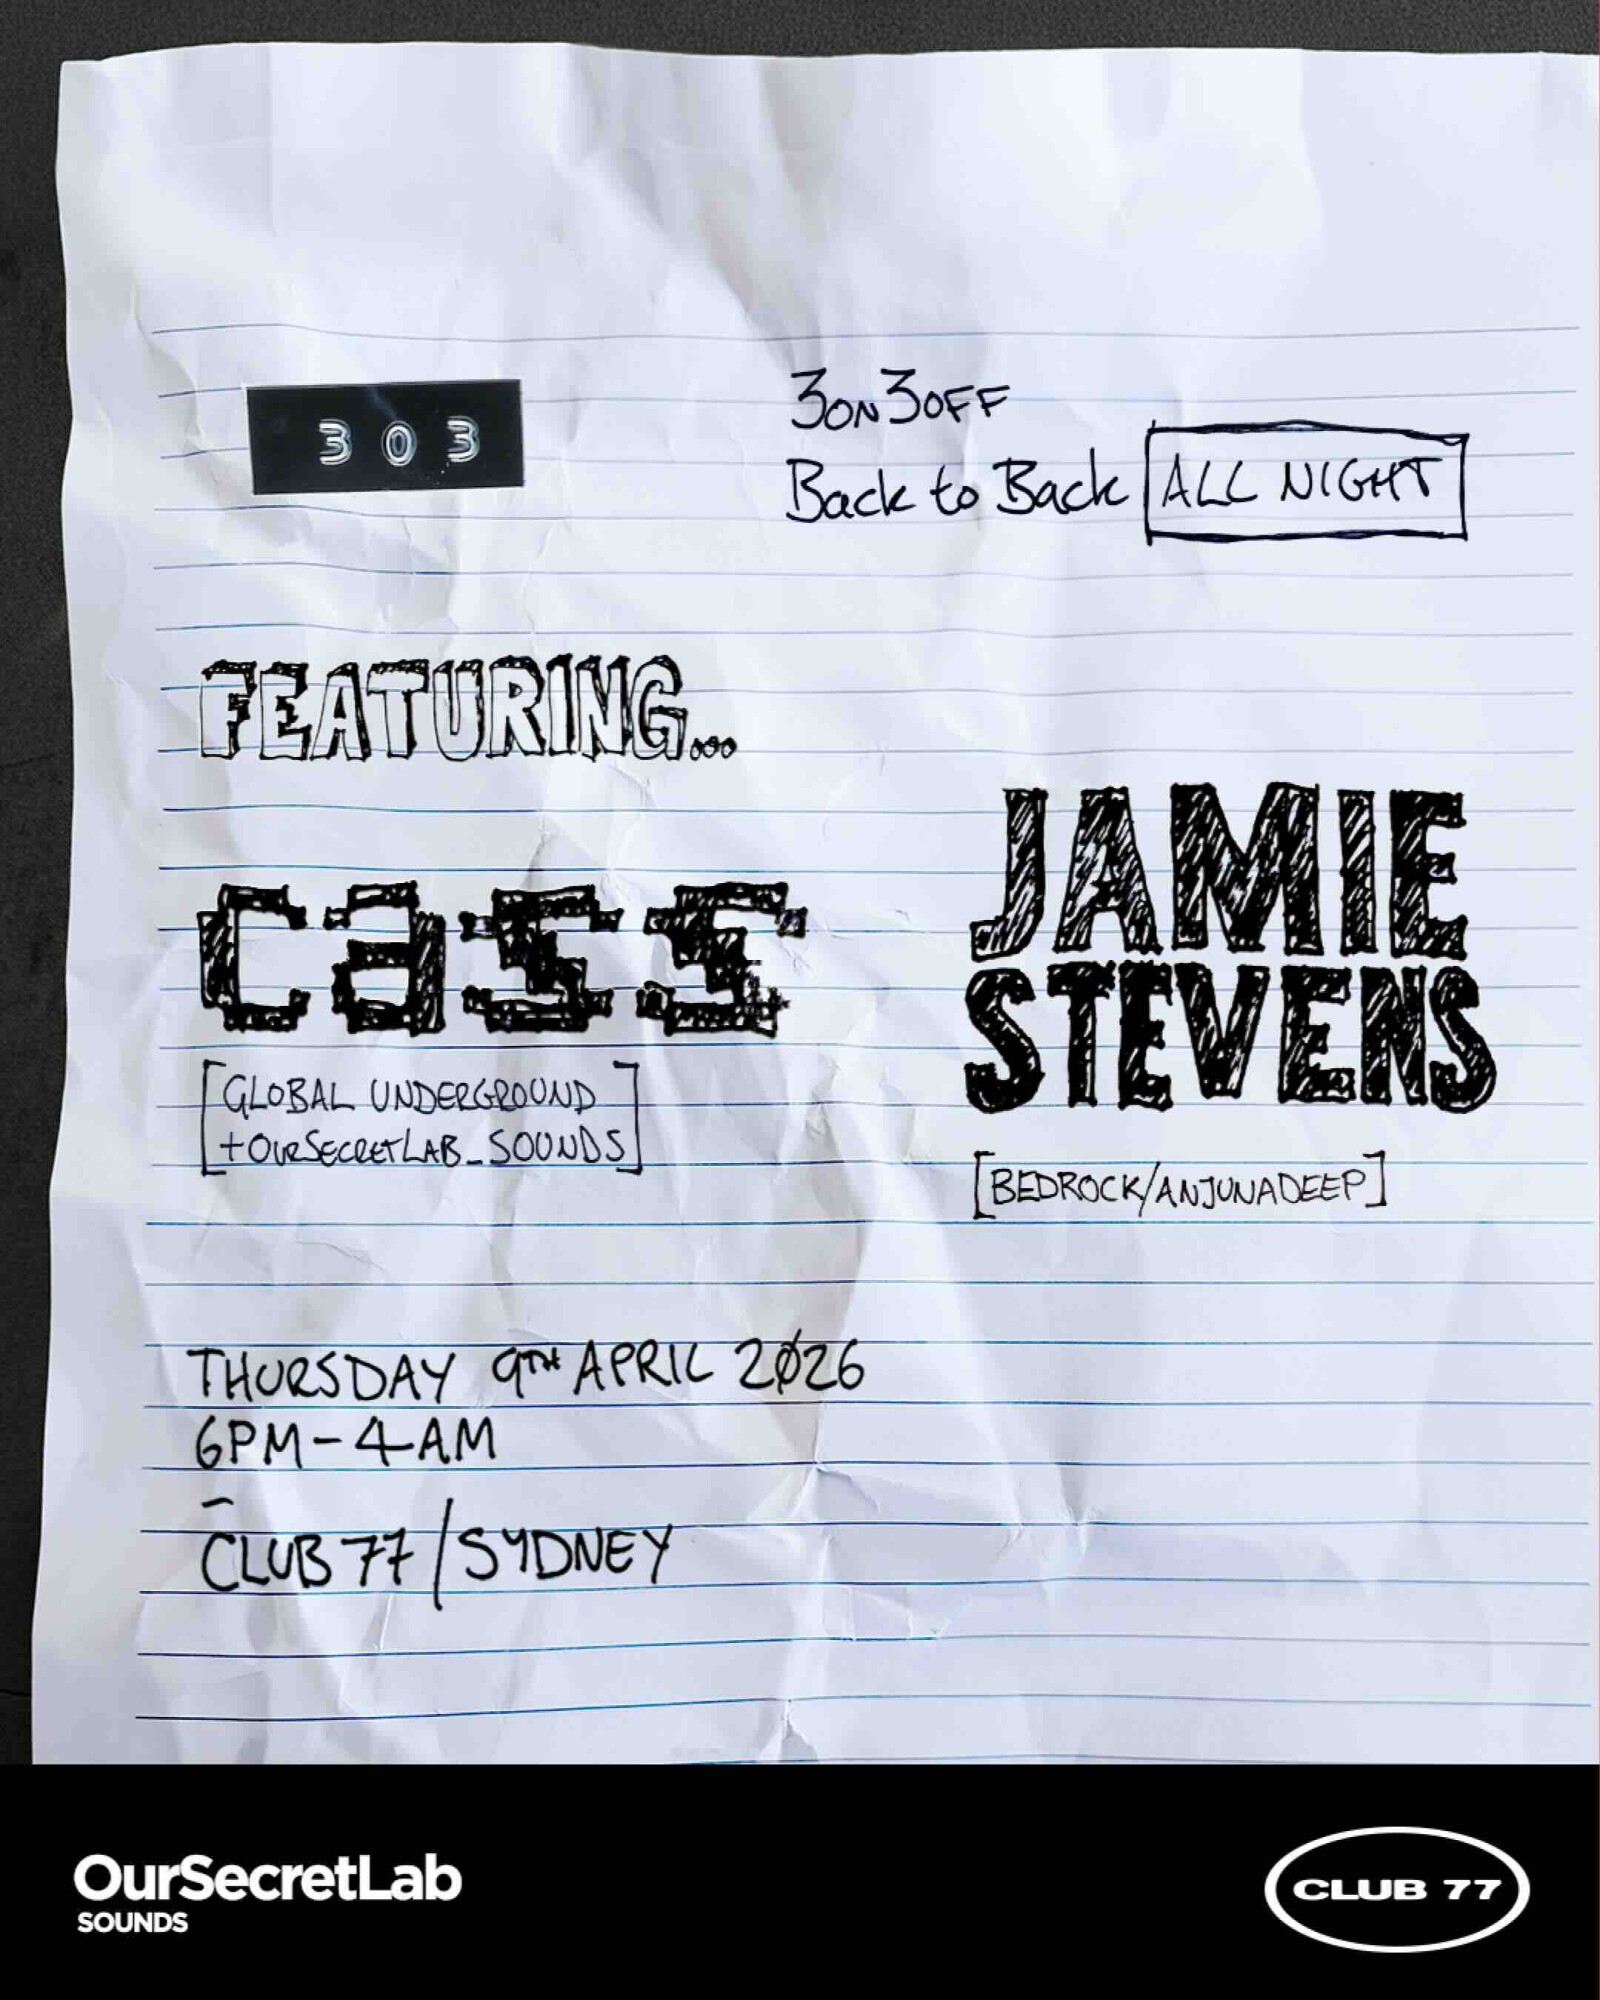 303
3ON3OFF
Back to Back ALL NIGHT
FEATURING...
cass
[GLOBAL UNDERGROUND
+OURSECRETLAB_SOUNDS]
JAMIE
STEVENS
[BEDROCK/ANJUNADEEP]
THURSDAY 9TH APRIL 2026
6PM-4AM
-
CLUB 77/SYDNEY
OurSecretLab
SOUNDS
CLUB 77